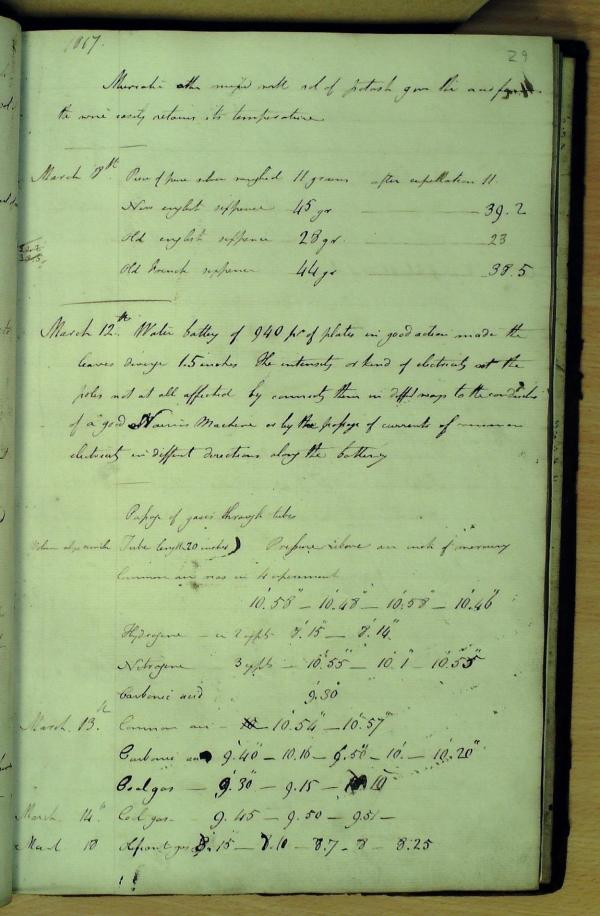 1817.
29
Muriatic ether mixed with sol of potash give the
the wire easily retains its temperature
March 8th Piece of pure silver weighed 11 grains after cupellation 11
New english sixpence 45 gr 39.2
Old english sixpence 28 gr 23
Old French sixpence 44 gr 38.5
March 12th. Water battery of 940 pr of plates in good action made the
leaves diverge 1.5 inches The intensity or kind of electricity at the
poles not at all affected by connecting them in difft ways to the conductor
of a good Nairnes Machine or by the passage of currents of common
electricity in different directions along the battery
Passage of gases through tubes
Tube length 20 inches) Pressure above an inch of mercury
Common air was in 4 experiment
10'.58" – 10'.48" – 10'.58" – 10'.46"
Hydrogene – in 2 expts 8'.15" – 8'.14"
Nitrogene 3 expts – 10'.55" – 10'.1 – 10'.55"
Carbonic acid 9'.30"
March. 13.th Common air – 10'.54" – 10'.57"
Carbonic acid 9'.40" – 10.16 – 9'.50" – 10'. – 10'.20"
Coal gas – 9'.30" – 9.15 – 10
March 14th Coal gas – 9.45 – 9.50 – 9.51 –
March 18 Olefiant gas 8.15 – 8.10 – 8.7 – 8 – 8.25